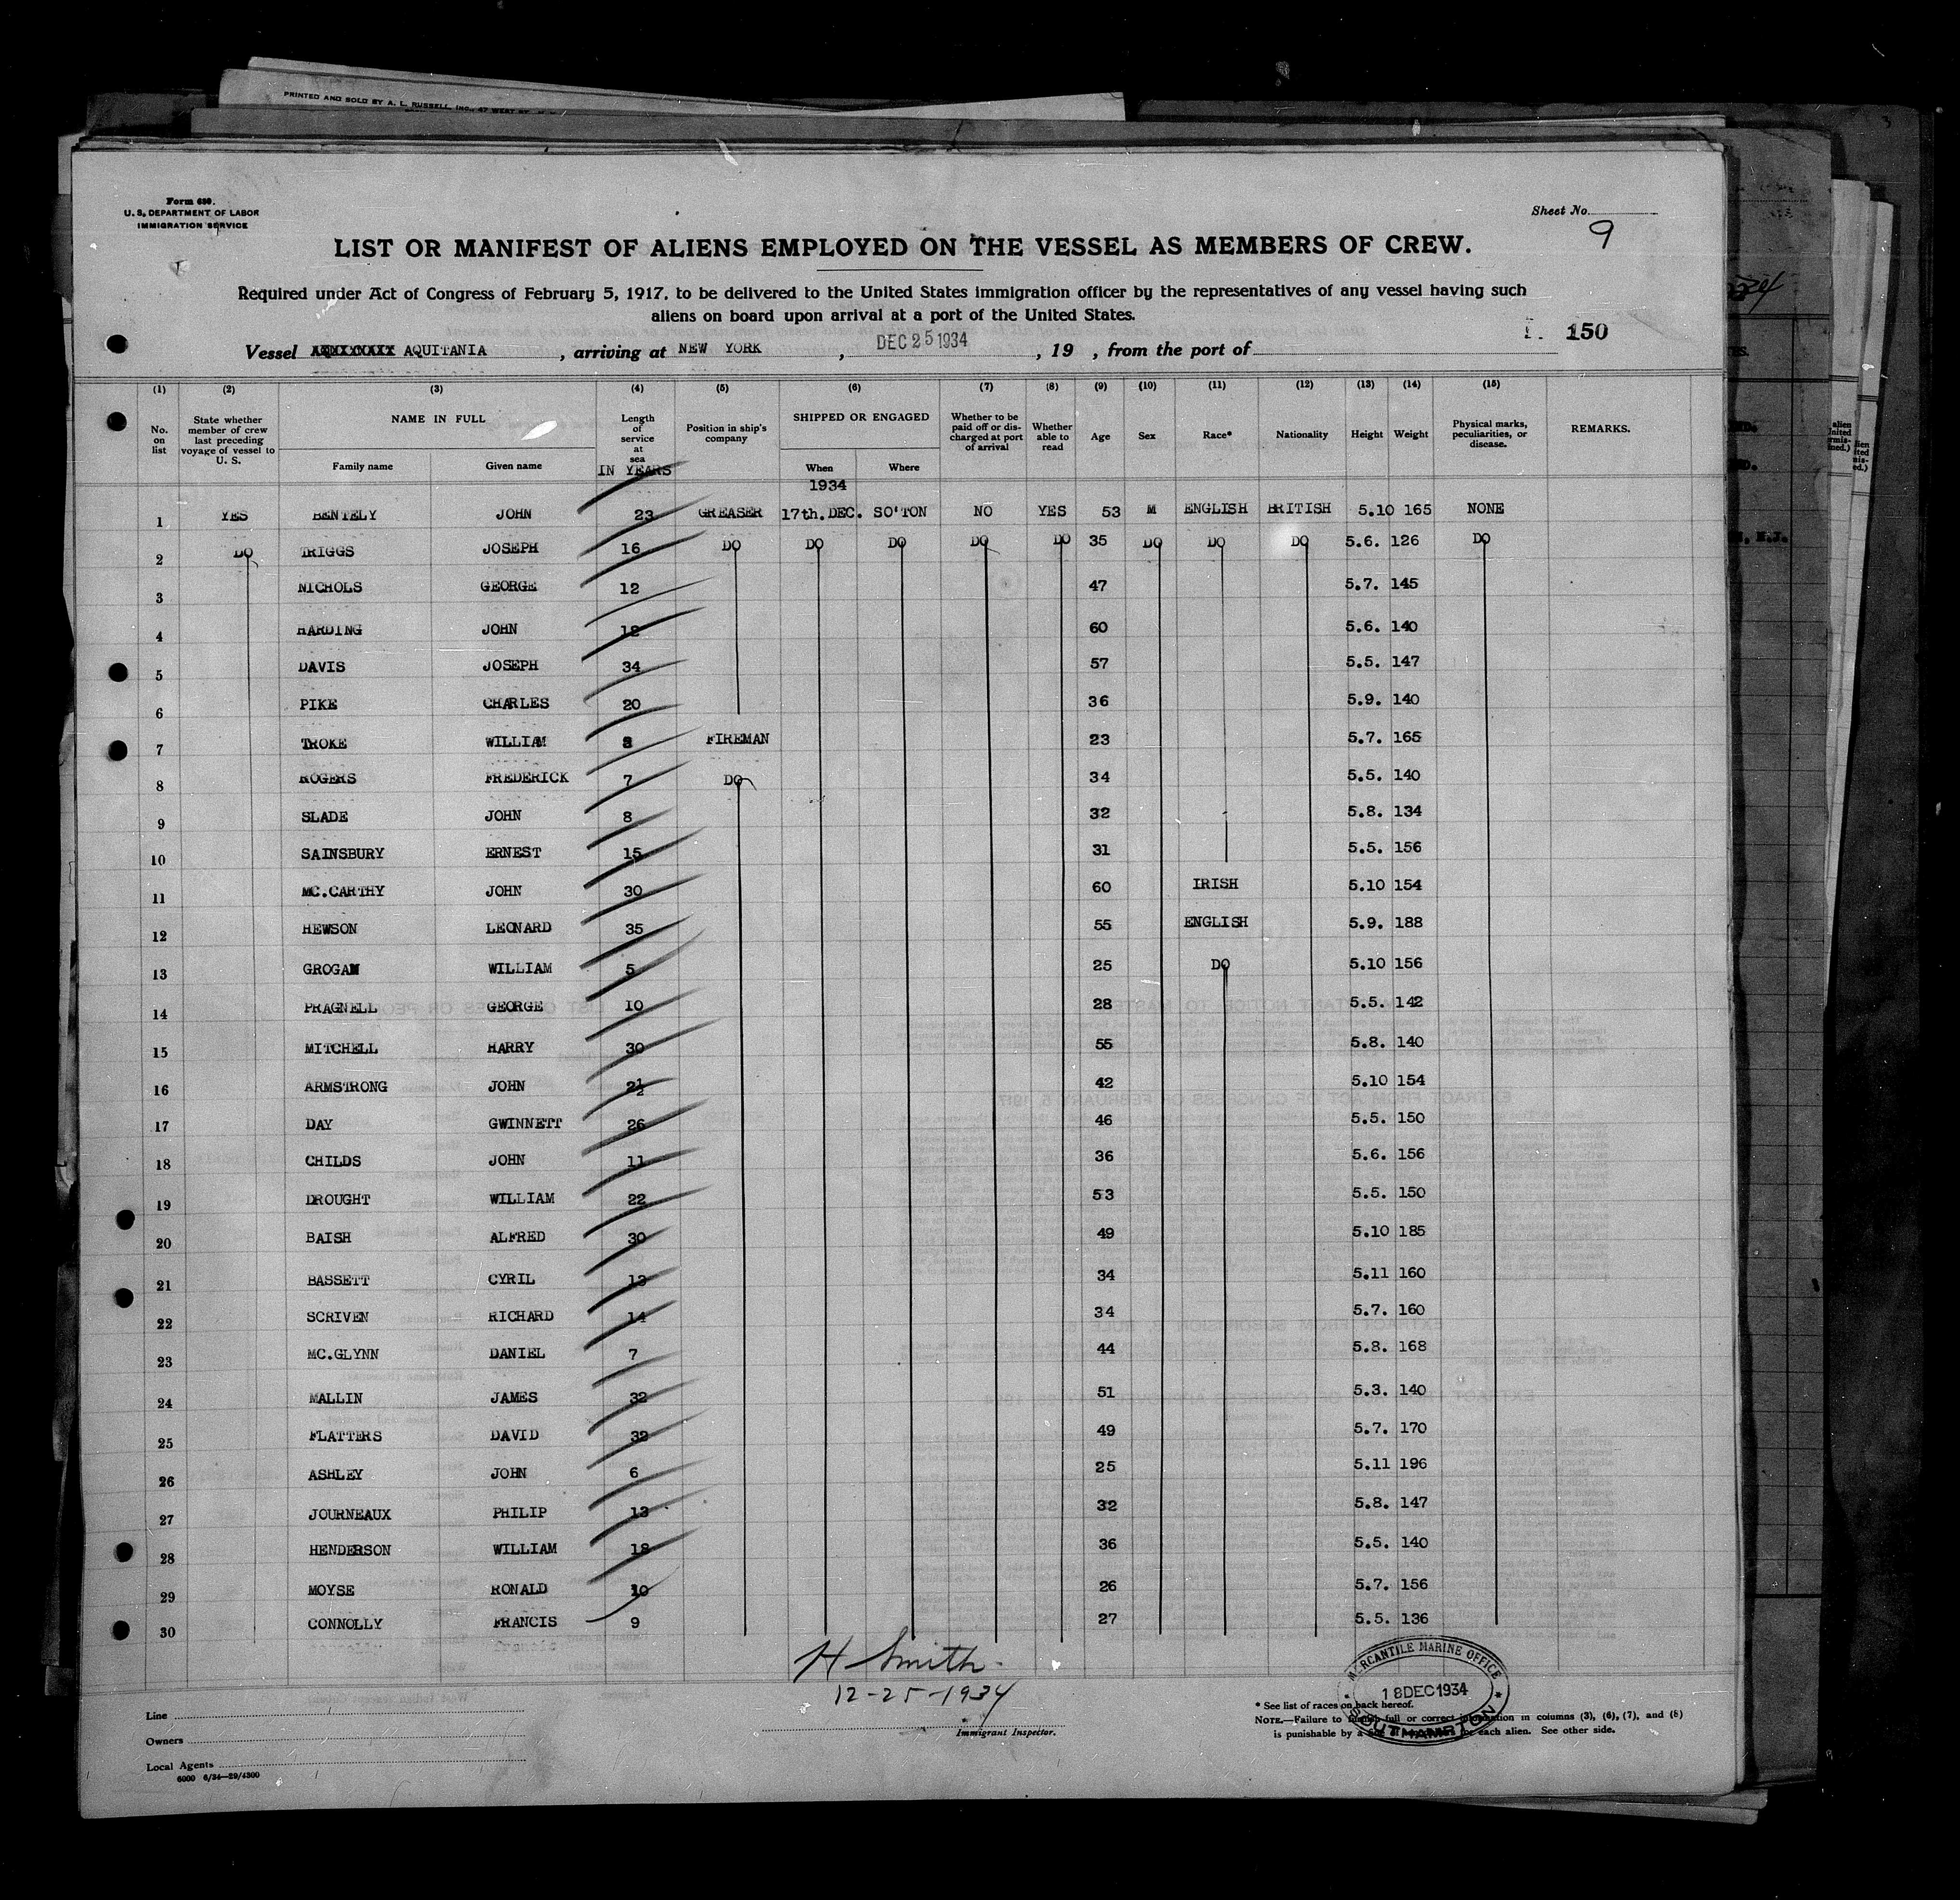 PRINTED AND SOLD BY A. L. RUSSELL, INC., 47 WEST ST.
Form 680.
U. S. DEPARTMENT OF LABOR
IMMIGRATION SERVICE
Sheet No.
9
LIST OR MANIFEST OF ALIENS EMPLOYED ON THE VESSEL AS MEMBERS OF CREW.
Required under Act of Congress of February 5, 1917, to be delivered to the United States immigration officer by the representatives of any vessel having such
aliens on board upon arrival at a port of the United States.
150
Vessel AQUITANIA , arriving at NEW YORK , DEC 25 1934 , 19 , from the port of
(1) (2) (3) (4) (5) (6) (7) (8) (9) (10) (11) (12) (13) (14) (15)
No. on list State whether member of crew last preceding voyage of vessel to U. S. NAME IN FULL Family name Given name Length of service at sea IN YEARS Position in ship's company SHIPPED OR ENGAGED When Where Whether to be paid off or discharged at port of arrival Whether able to read Age Sex Race* Nationality Height Weight Physical marks, peculiarities, or disease. REMARKS.
1934
1 YES BENTELY JOHN 23 GREASER 17th.DEC. SO'TON NO YES 53 M ENGLISH BRITISH 5.10 165 NONE
2 DO TRIGGS JOSEPH 16 DO DO DO DO DO 35 DO DO DO 5.6. 126 DO
3 NICHOLS GEORGE 12 47 5.7. 145
4 HARDING JOHN 12 60 5.6. 140
5 DAVIS JOSEPH 34 57 5.5. 147
6 PIKE CHARLES 20 36 5.9. 140
7 TROKE WILLIAM FIREMAN 23 5.7. 165
8 ROGERS FREDERICK 7 DO 34 5.5. 140
9 SLADE JOHN 8 32 5.8. 134
10 SAINSBURY ERNEST 15 31 5.5. 156
11 MC.CARTHY JOHN 30 60 IRISH 5.10 154
12 HEWSON LEONARD 35 55 ENGLISH 5.9. 188
13 GROGAN WILLIAM 5 25 DO 5.10 156
14 PRAGNELL GEORGE 10 28 5.5. 142
15 MITCHELL HARRY 30 55 5.8. 140
16 ARMSTRONG JOHN 2½ 42 5.10 154
17 DAY GWINNETT 26 46 5.5. 150
18 CHILDS JOHN 11 36 5.6. 156
19 DROUGHT WILLIAM 22 53 5.5. 150
20 BAISH ALFRED 30 49 5.10 185
21 BASSETT CYRIL 13 34 5.11 160
22 SCRIVEN RICHARD 14 34 5.7. 160
23 MC.GLYNN DANIEL 7 44 5.8. 168
24 MALLIN JAMES 32 51 5.3. 140
25 FLATTERS DAVID 32 49 5.7. 170
26 ASHLEY JOHN 6 25 5.11 196
27 JOURNEAUX PHILIP 13 32 5.8. 147
28 HENDERSON WILLIAM 18 36 5.5. 140
29 MOYSE RONALD 10 26 5.7. 156
30 CONNOLLY FRANCIS 9 27 5.5. 136
H Smith
12-25-1934
Immigrant Inspector.
Line
Owners
Local Agents
6000 6/34—29/4300
MERCANTILE MARINE OFFICE
18 DEC 1934
SOUTHAMPTON
* See list of races on back hereof.
NOTE.—Failure to furnish full or correct information in columns (3), (6), (7), and (8)
is punishable by a for each alien. See other side.